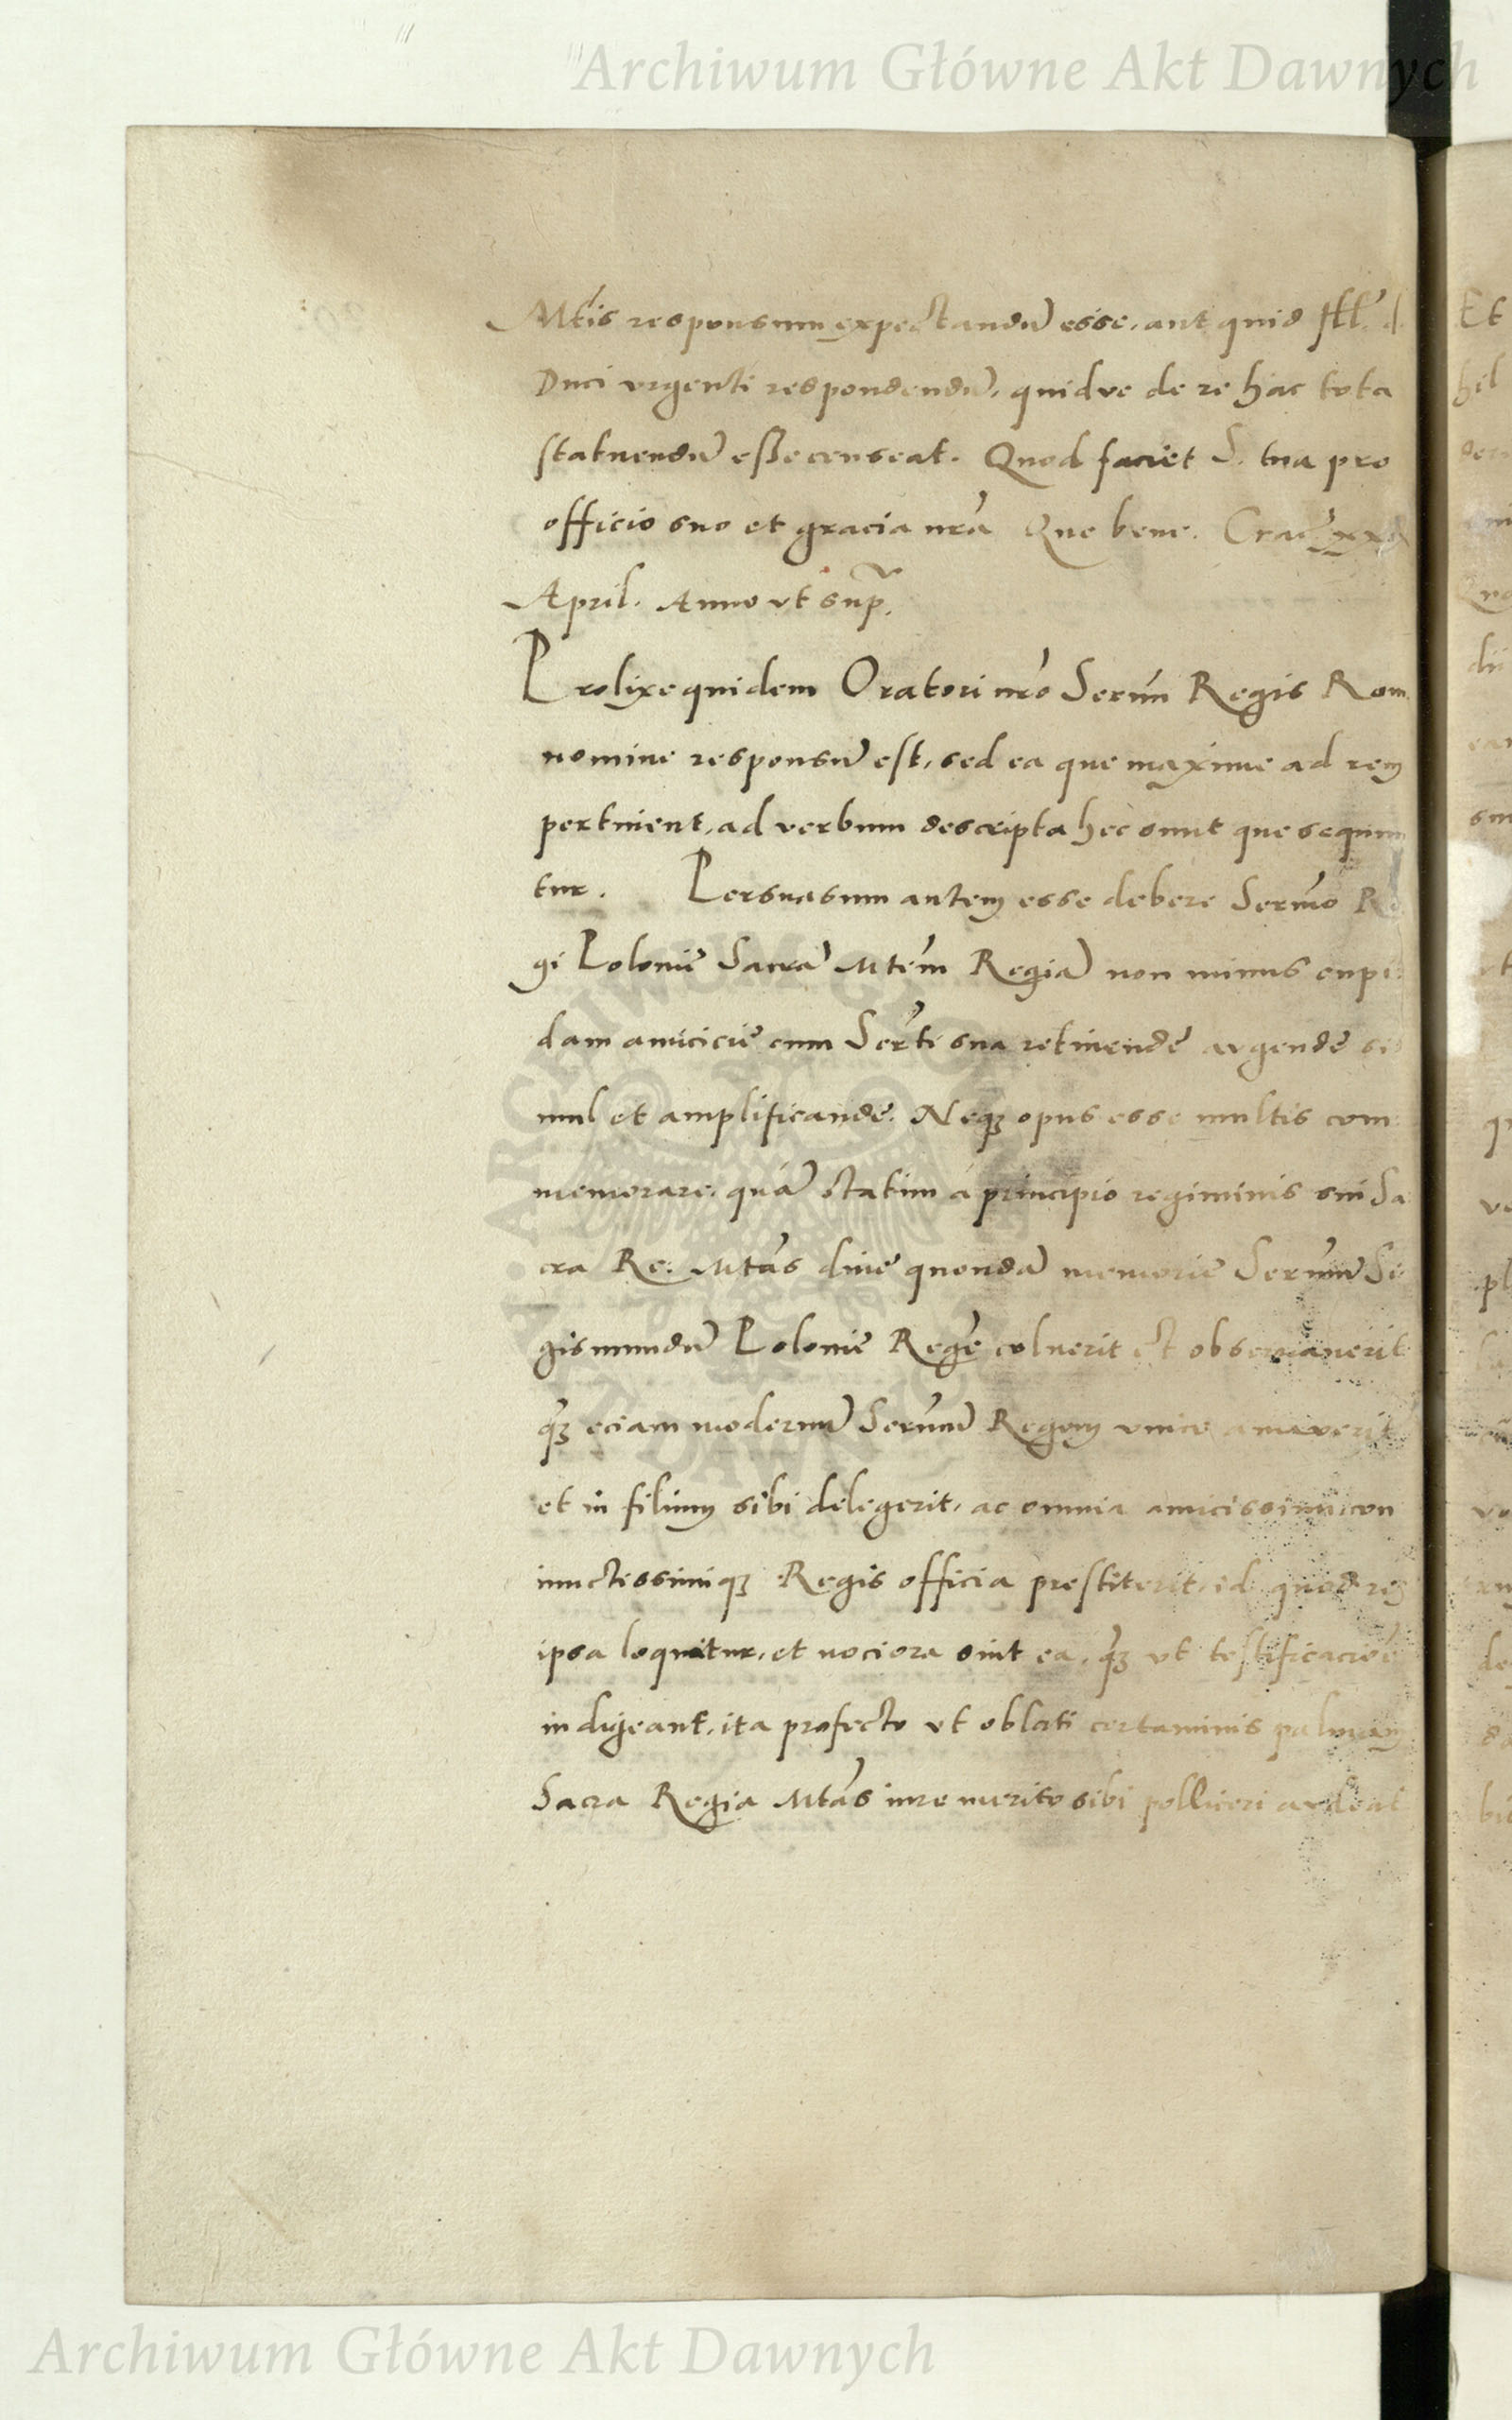 Archiwum Główne Akt Dawnych
Mtis responsum expectandũ esse, aut quid Ill. d.
Duci urgenti respondendũ, quidve de re hac tota
statuendũ esse censeat. Quod faciet S. tua pro
officio suo et gracia nrã Que bene. Crac̃
April. Anno ut sup̃.
Prolixe quidem Oratori nrõ Serm̃i Regis Rom.
nomine responsũ est, sed ea que maxime ad rem
pertinent, ad verbum descripta hec sunt que sequun
tur. Persuasum autem esse debere Sermõ Re
gi Polonię Sacrã Mtẽm Regiã non minus cupi
dam amicicię cum Sertĩ sua retinendę augendę si
mul et amplificandę. Neq; opus esse multis com
memorare, quã statim à principio regiminis sui Sa
cra Re: Mtãs divę quondã memorię Sermũ Si
gismundũ Polonię Regẽ coluerit et observaverit
q̃; eciam modernũ Sermũ Regem unice amaverit
et in filium sibi delegerit, ac omnia amicissimi con
iunctissimiq; Regis officia prestiterit, id quod res
ipsa loquitur, et nociora sint ea, q̃; ut testificaciõe
indigeant, ita profecto ut oblati certaminis palmam
Sacra Regia Mtãs iure merito sibi polliceri audeat
Archiwum Główne Akt Dawnych